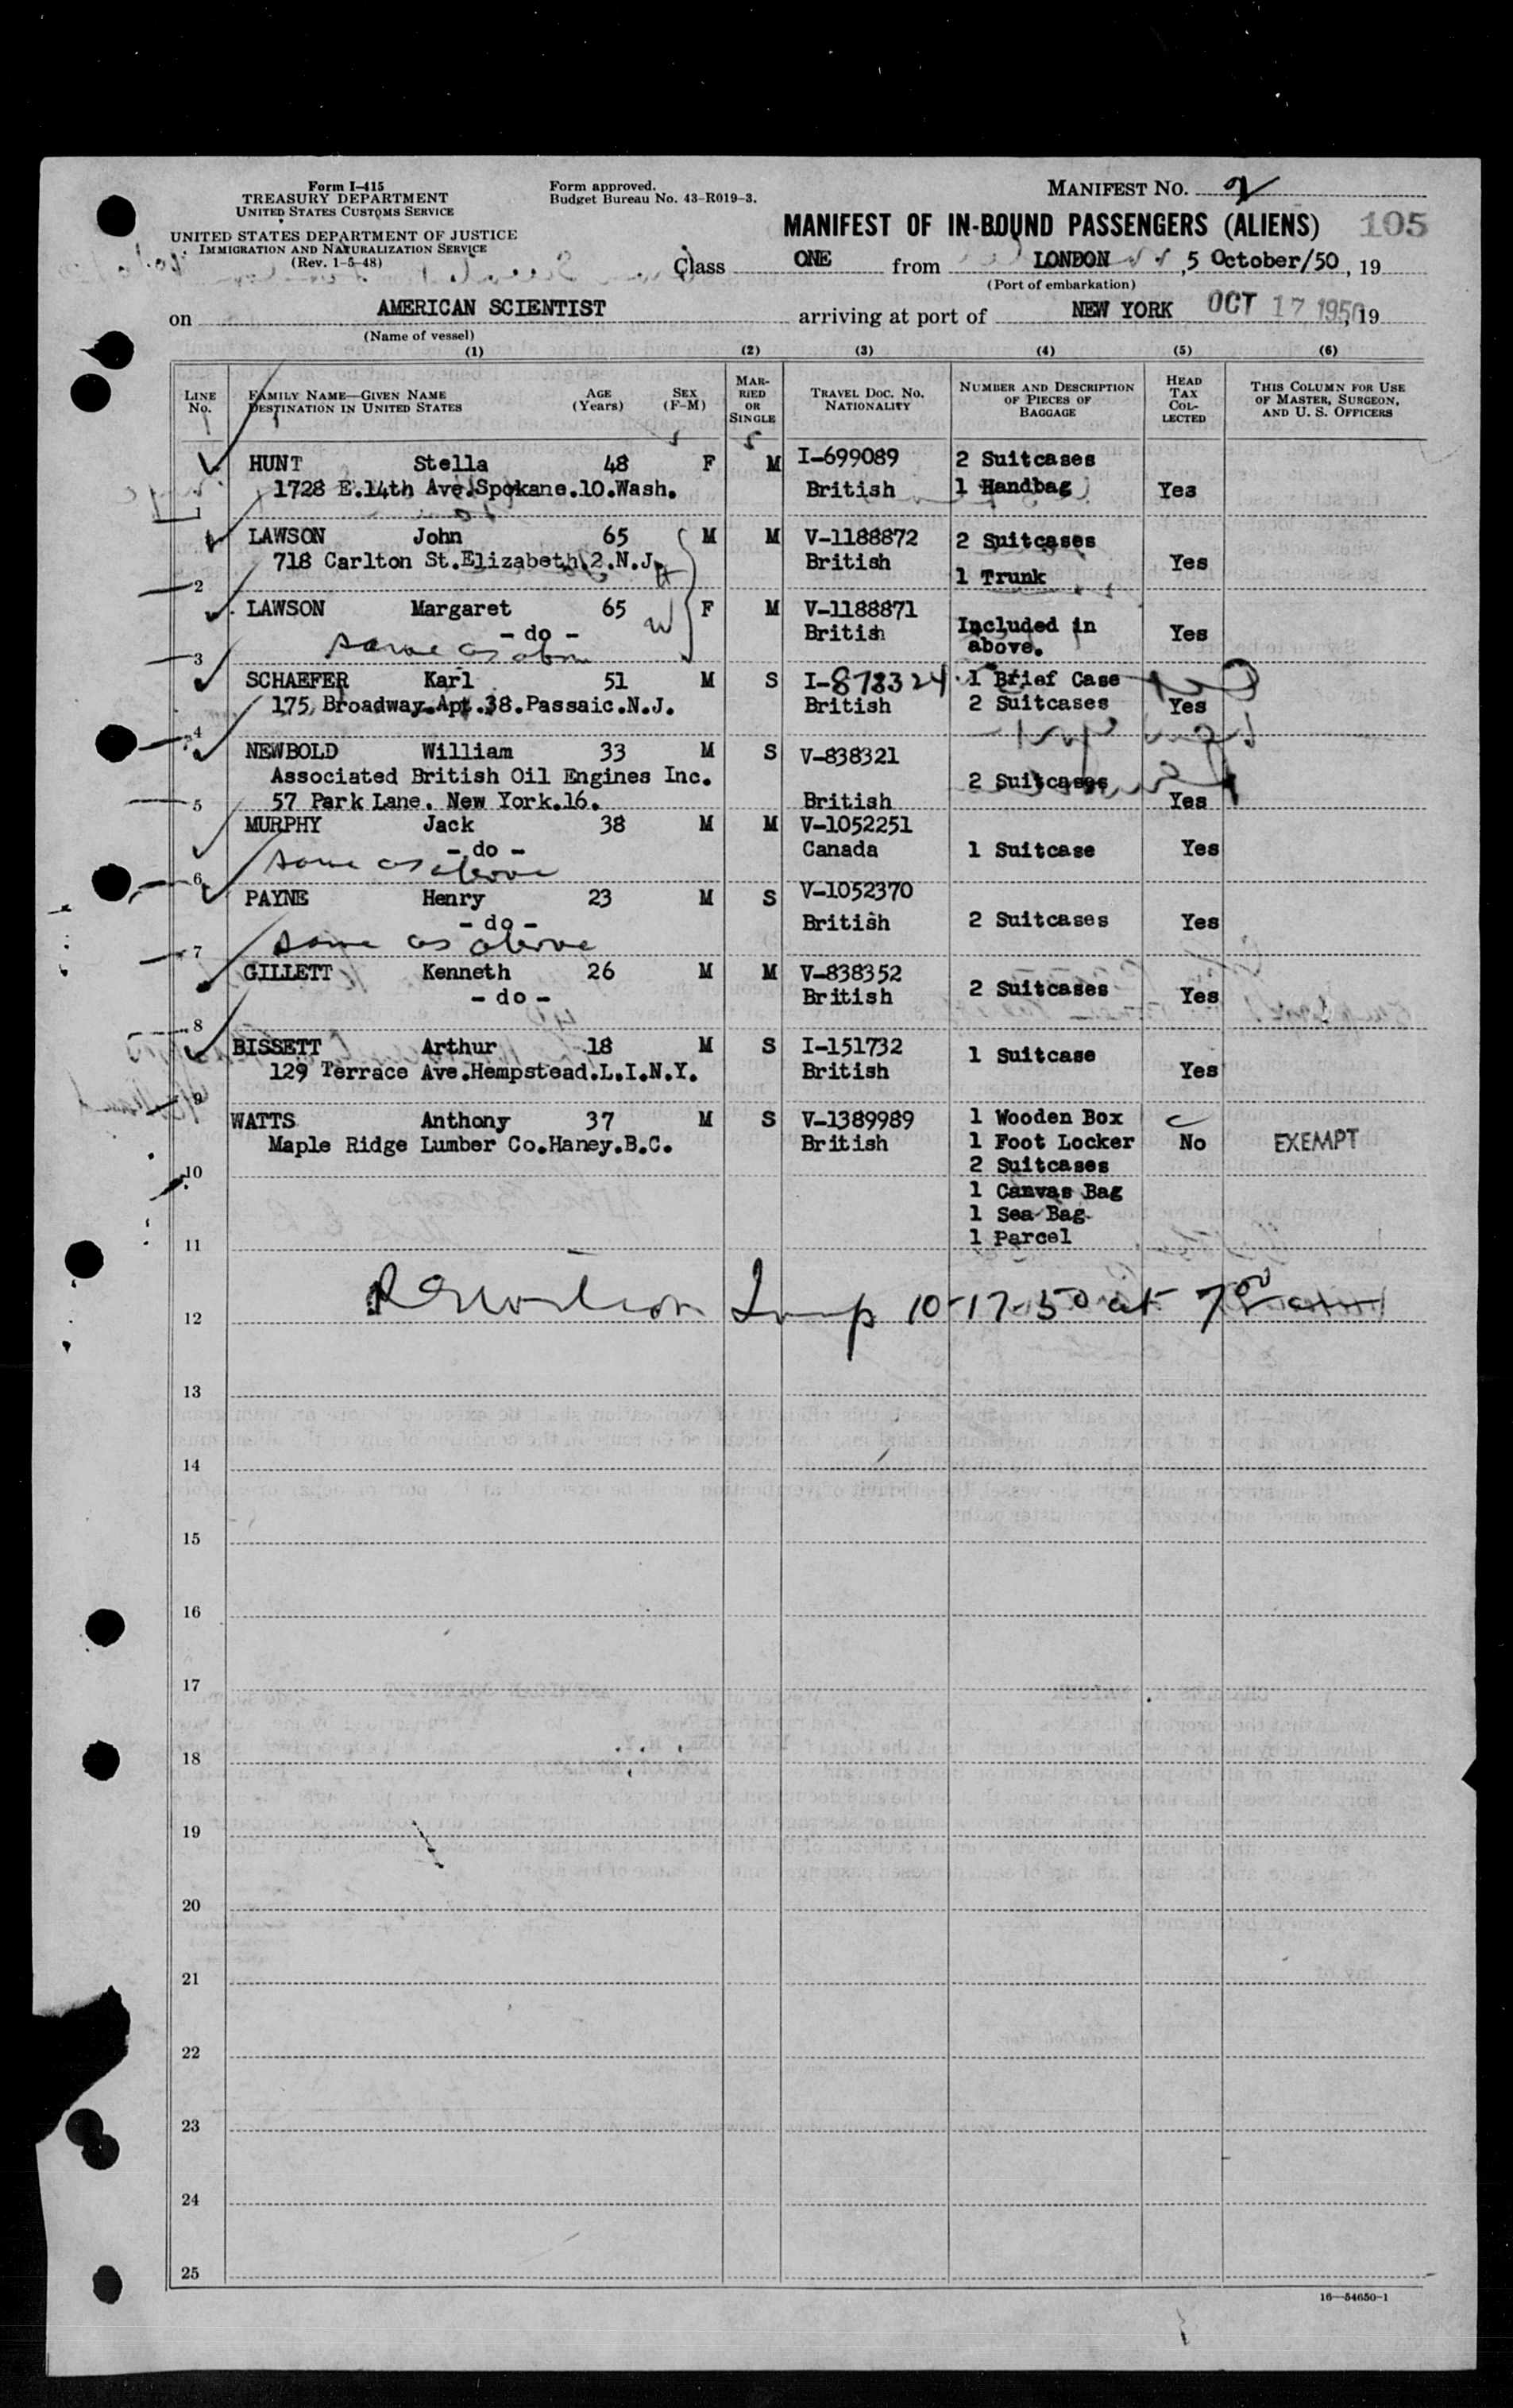 Form I-415
TREASURY DEPARTMENT
UNITED STATES CUSTOMS SERVICE
UNITED STATES DEPARTMENT OF JUSTICE
IMMIGRATION AND NATURALIZATION SERVICE
(Rev. 1-5-48)
Form approved.
Budget Bureau No. 43-R019-3.
MANIFEST NO. 2
MANIFEST OF IN-BOUND PASSENGERS (ALIENS) 105
Class ONE from LONDON, 5 October/50, 19
(Port of embarkation)
on AMERICAN SCIENTIST arriving at port of NEW YORK OCT 17 1950, 19
(Name of vessel)
(1) (2) (3) (4) (5) (6)
LINE No.
FAMILY NAME—GIVEN NAME
DESTINATION IN UNITED STATES
AGE (Years)
SEX (F-M)
MARRIED OR SINGLE
TRAVEL DOC. NO. NATIONALITY
NUMBER AND DESCRIPTION OF PIECES OF BAGGAGE
HEAD TAX COLLECTED
THIS COLUMN FOR USE OF MASTER, SURGEON, AND U. S. OFFICERS
HUNT Stella 48 F M I-699089 2 Suitcases
1728 E.14th Ave.Spokane.10.Wash. British 1 Handbag Yes
1
LAWSON John 65 M M V-1188872 2 Suitcases
718 Carlton St.Elizabeth 2.N.J. H British Yes
1 Trunk
2
LAWSON Margaret 65 W F M V-1188871
- do - British Included in above. Yes
same as above
3
SCHAEFER Karl 51 M S I-878324 1 Brief Case
175 Broadway.Apt.38.Passaic.N.J. British 2 Suitcases Yes
4
NEWBOLD William 33 M S V-838321
Associated British Oil Engines Inc. 2 Suitcases
5 57 Park Lane. New York.16. British Yes
MURPHY Jack 38 M M V-1052251
- do - Canada 1 Suitcase Yes
same as above
6
PAYNE Henry 23 M S V-1052370
- do - British 2 Suitcases Yes
same as above
7
GILLETT Kenneth 26 M M V-838352
- do - British 2 Suitcases Yes
8
BISSETT Arthur 18 M S I-151732 1 Suitcase
129 Terrace Ave.Hempstead.L.I.N.Y. British Yes
9
WATTS Anthony 37 M S V-1389989 1 Wooden Box
Maple Ridge Lumber Co.Haney.B.C. British 1 Foot Locker No EXEMPT
10 2 Suitcases
1 Canvas Bag
1 Sea Bag
1 Parcel
11
12 10-17-50 at 7 00
13
14
15
16
17
18
19
20
21
22
23
24
25
16—54650-1